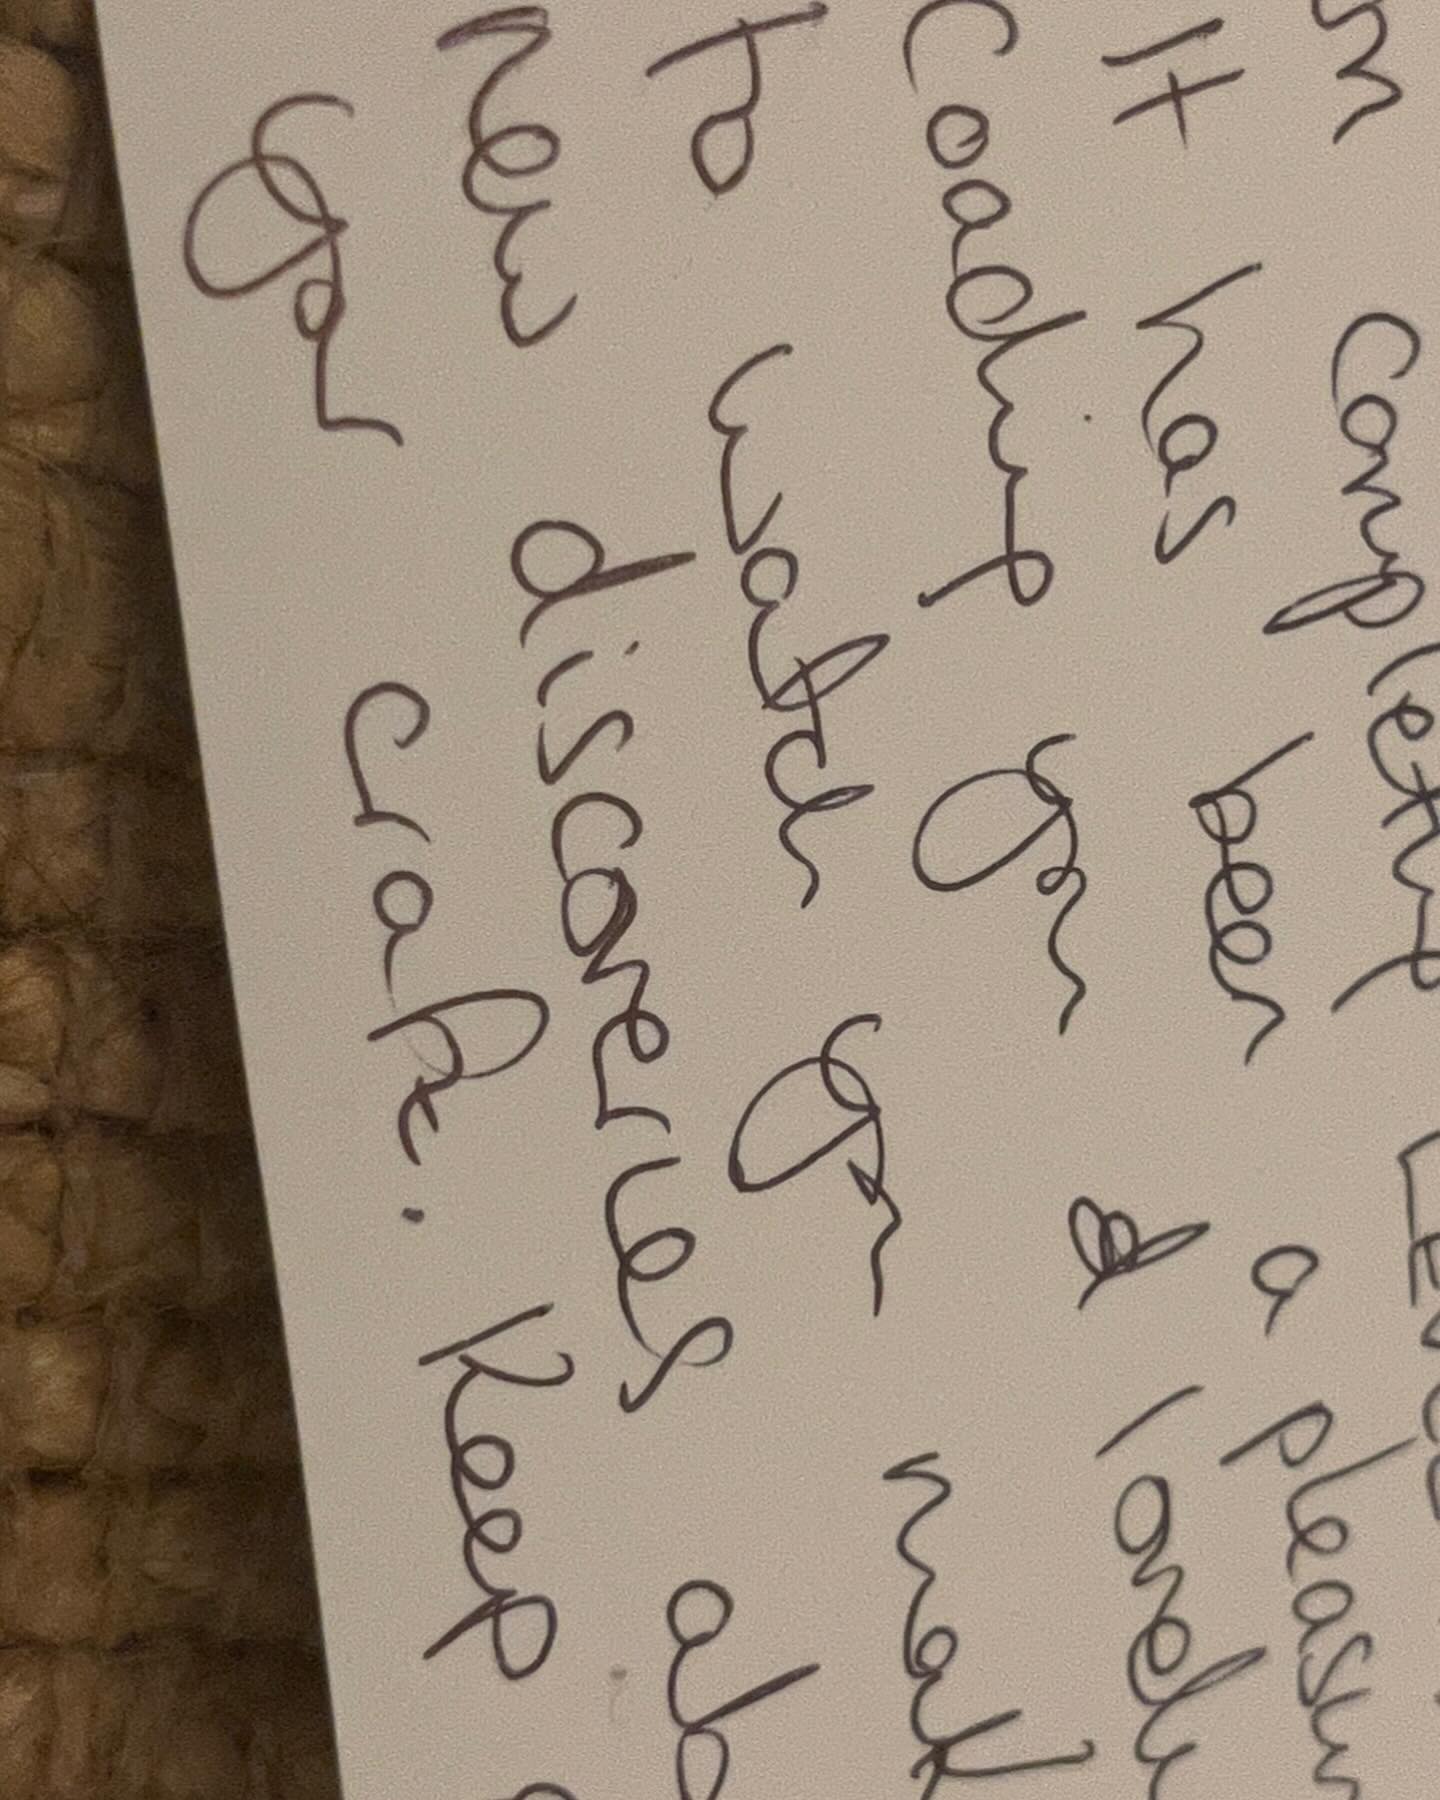 on completing Leve
It has been a pleasu
coaching you & lovely
to watch you mak
new discoveries ab
your craft. Keep